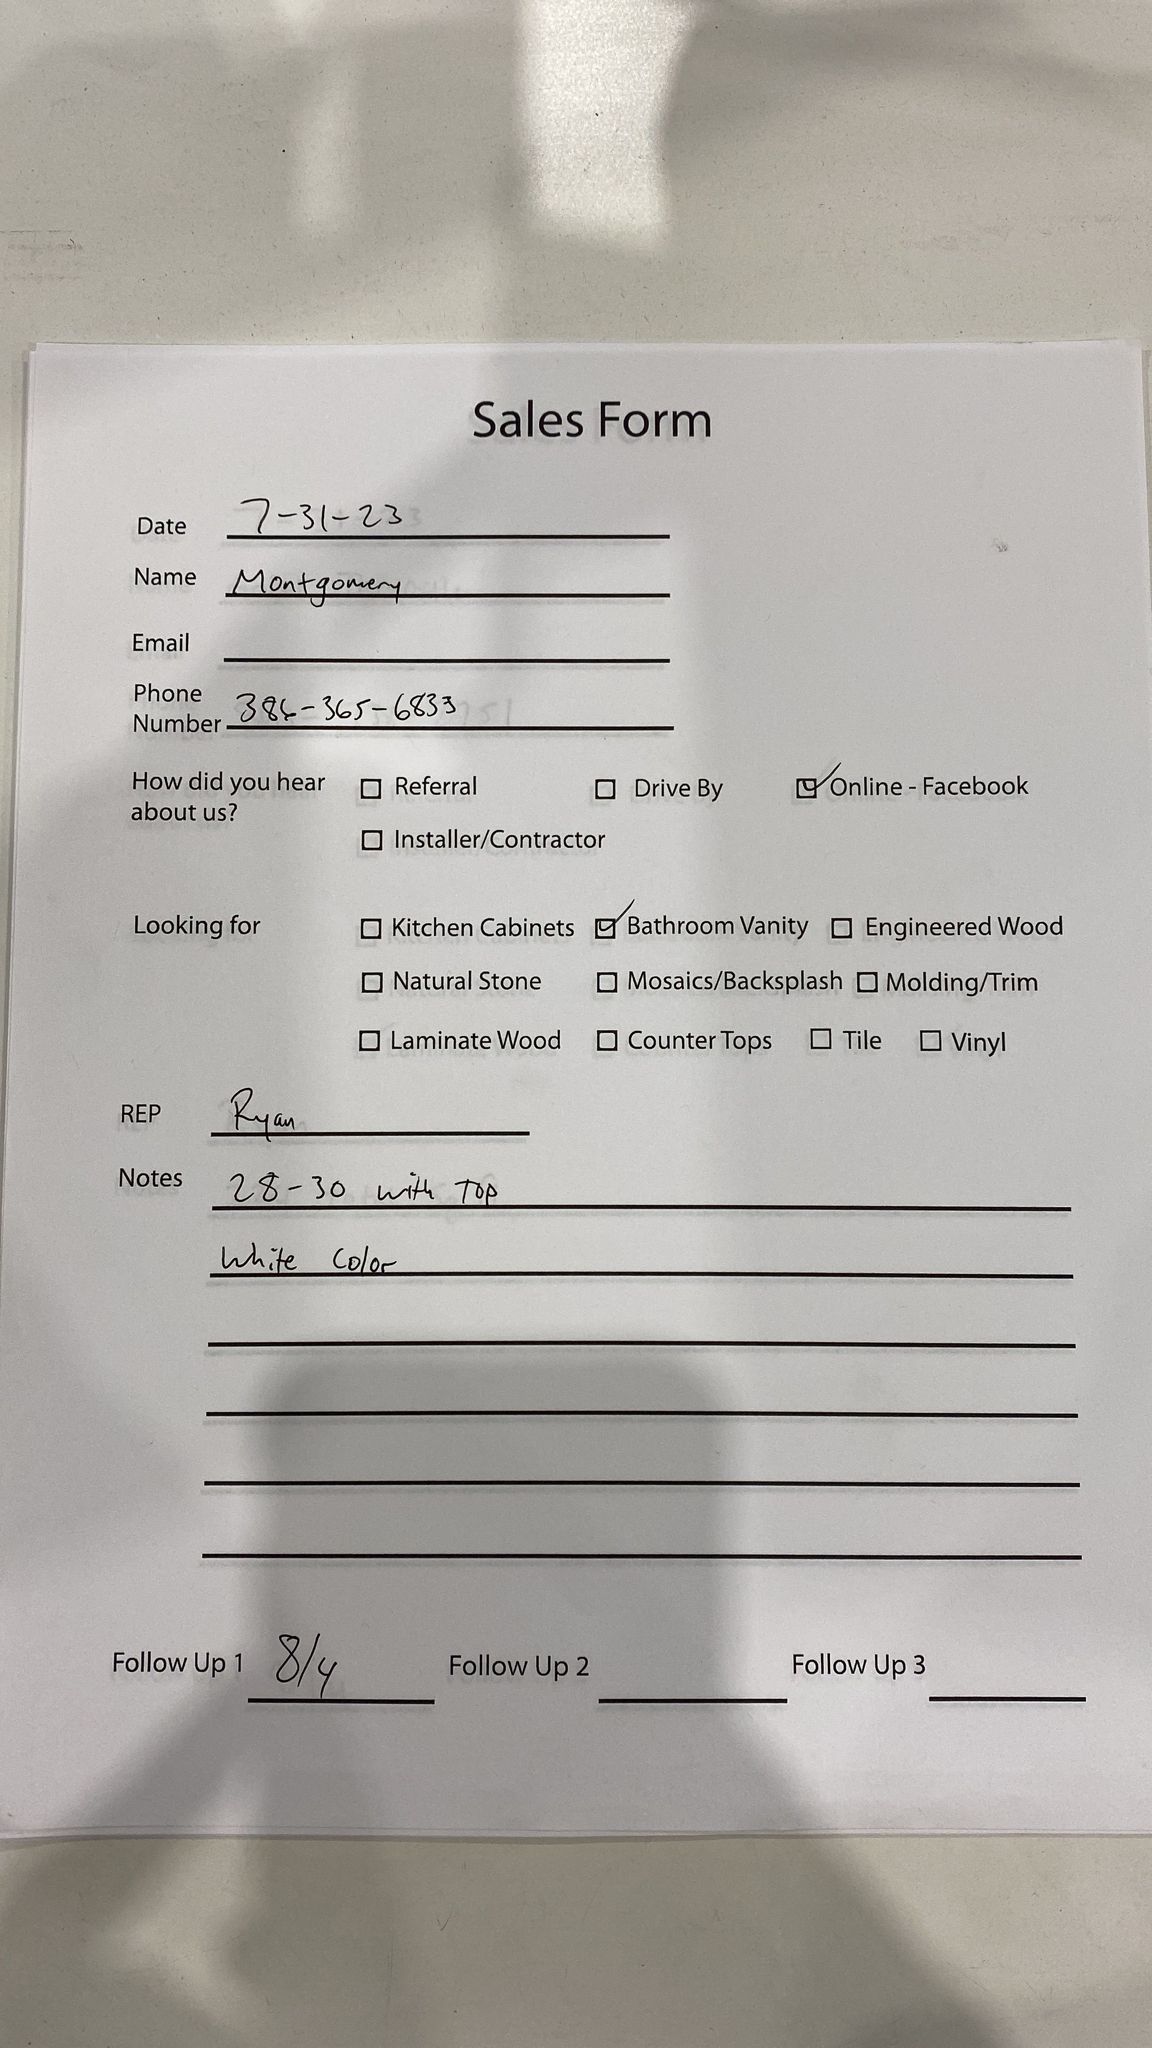 Sales Form
Date 7-31-23
Name Montgomery
Email
Phone Number 386-365-6833
How did you hear about us?
☐ Referral ☐ Drive By ☑ Online - Facebook
☐ Installer/Contractor
Looking for ☐ Kitchen Cabinets ☑ Bathroom Vanity ☐ Engineered Wood
☐ Natural Stone ☐ Mosaics/Backsplash ☐ Molding/Trim
☐ Laminate Wood ☐ Counter Tops ☐ Tile ☐ Vinyl
REP Ryan
Notes 28-30 with Top
White Color
Follow Up 1 8/4 Follow Up 2 Follow Up 3